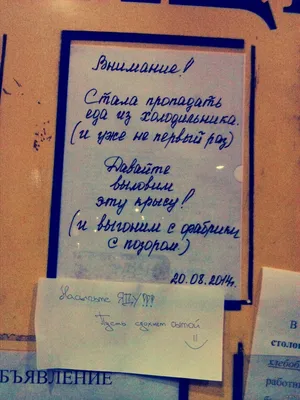 Внимание!!
Стала пропадать
еда из холодильника.
(и уже не первый раз)
Давайте
выловим
эту крысу!
(и выгоним с фабрики
с позором.)
20.08.2014г.
Насыпьте ЯДУ!!!
Пусть сдохнет сытой
ОБЪЯВЛЕНИЕ
В
столо
хлебоб
работн